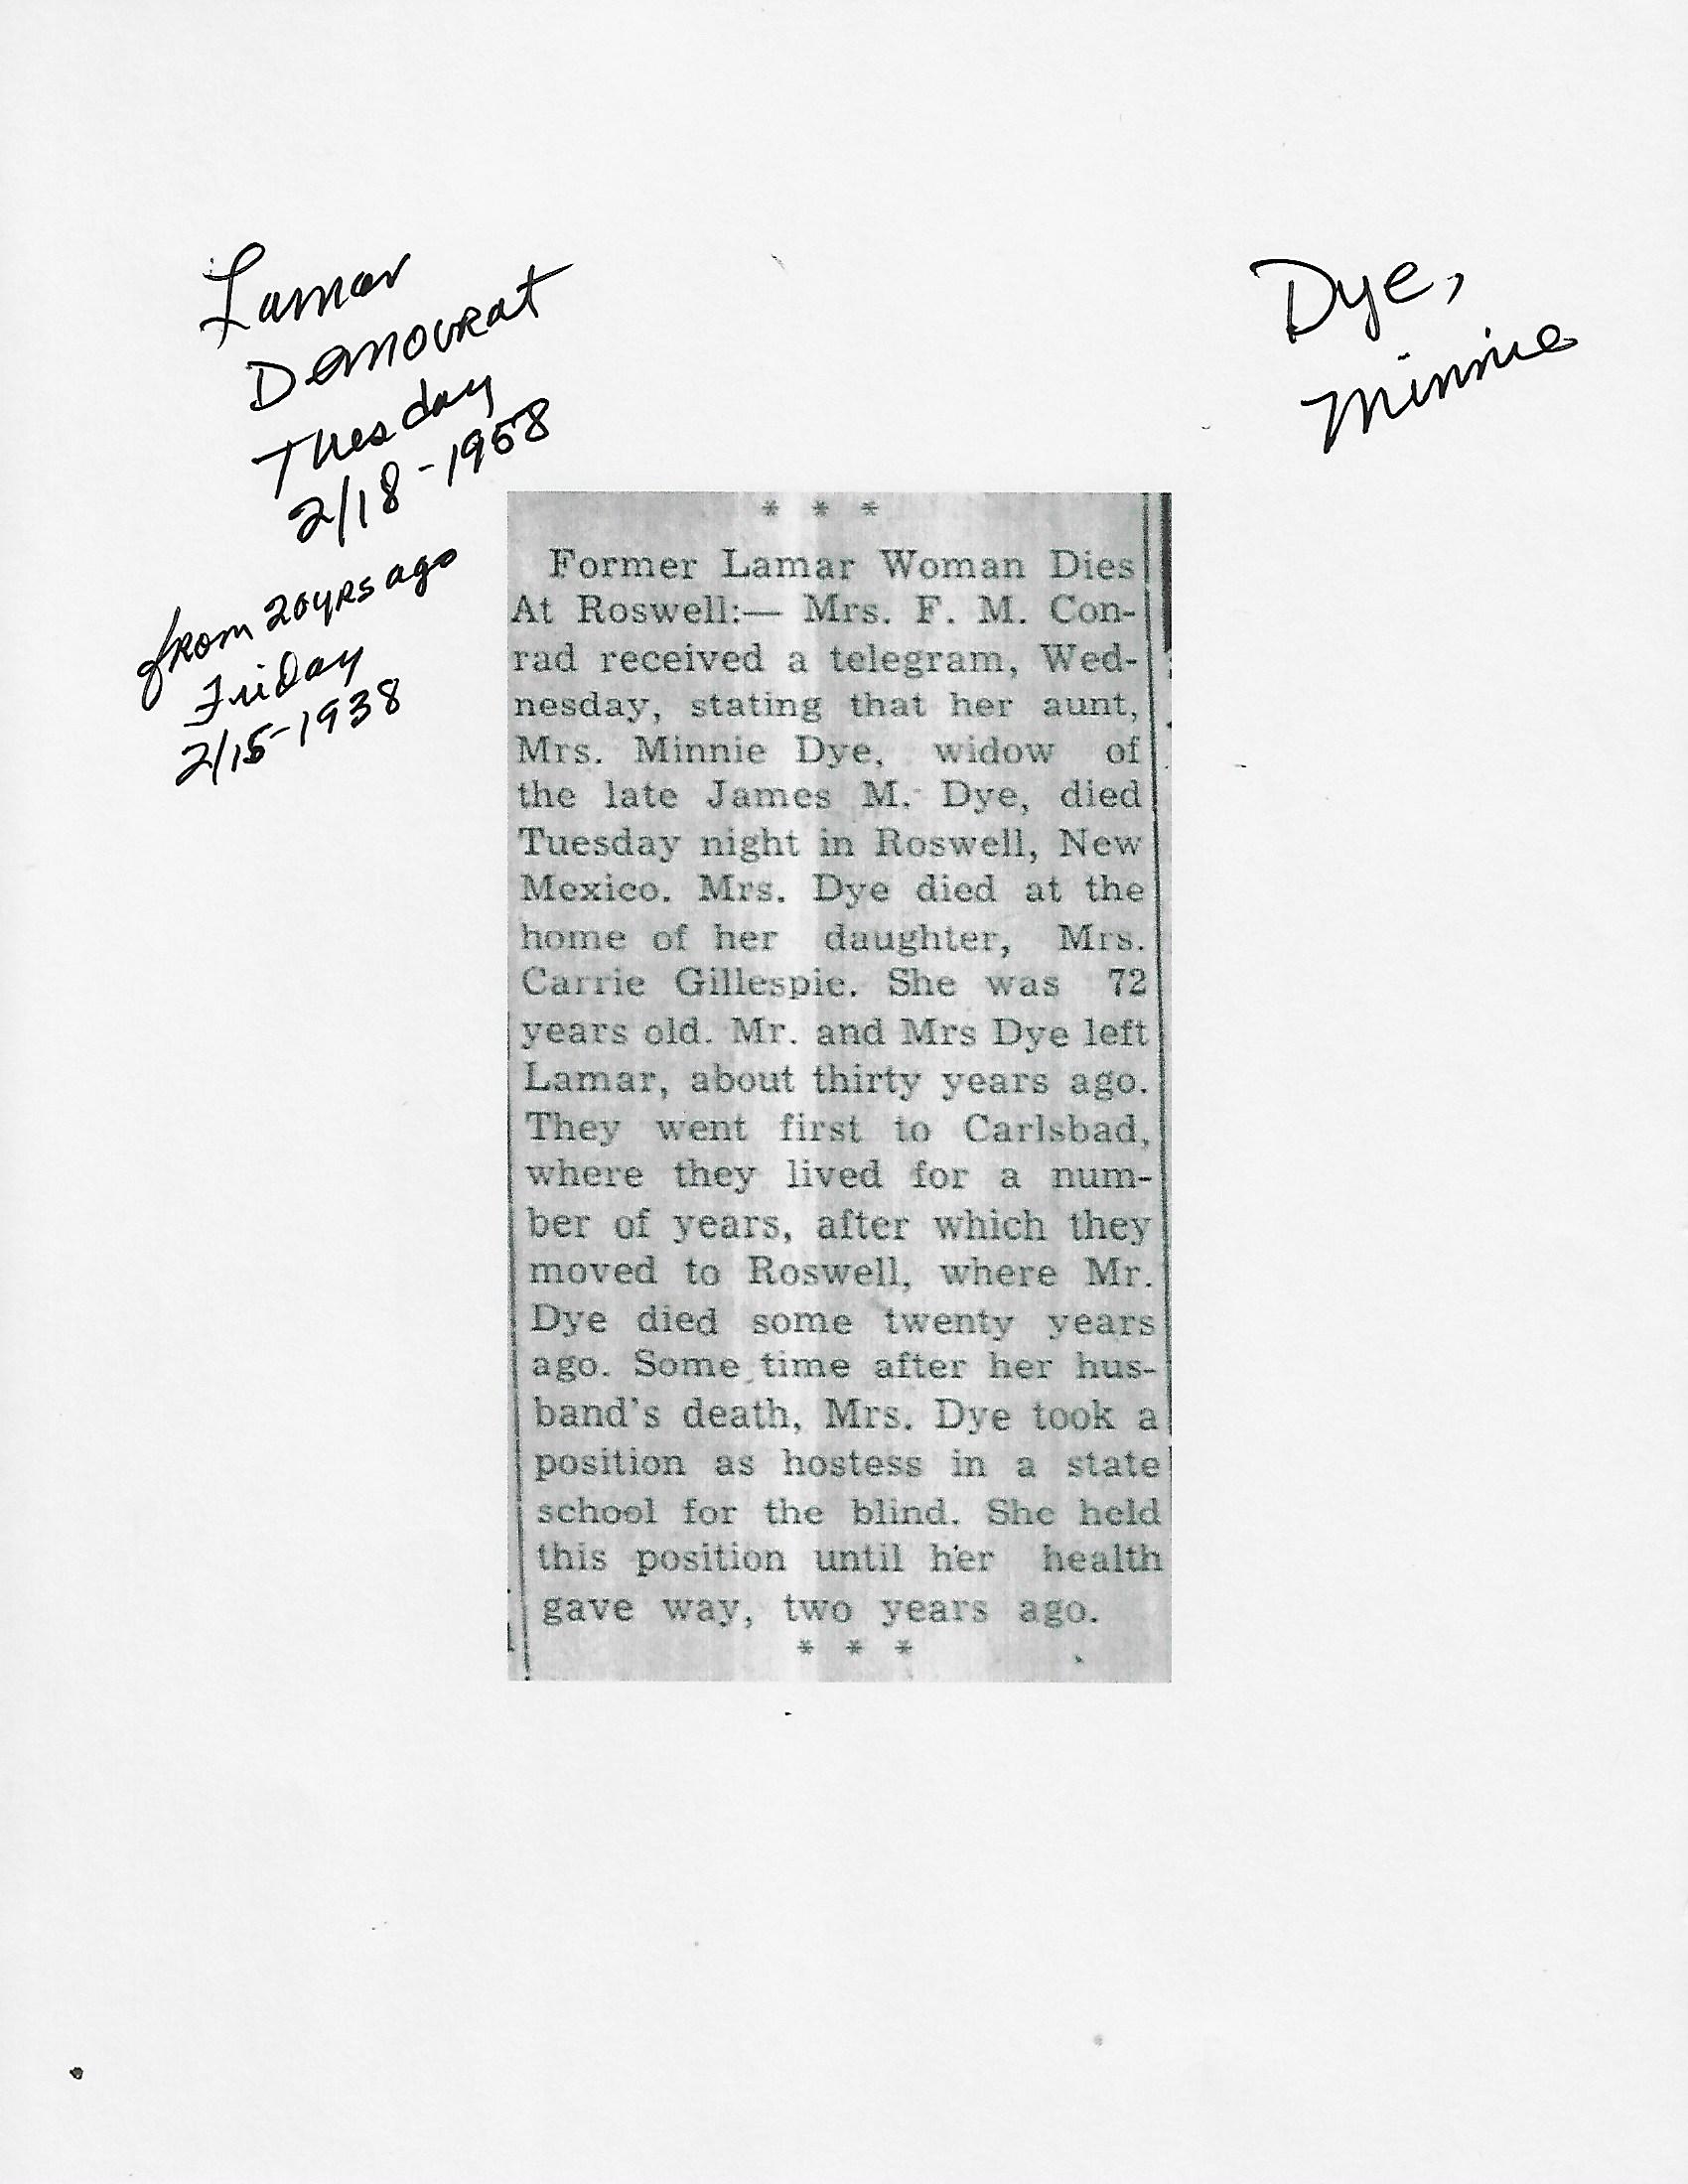 Lamar
Democrat
Tuesday
2/18-1958
from 20yrs ago
Friday
2/15-1938
Dye,
Minnie
* * *
Former Lamar Woman Dies
At Roswell:— Mrs. F. M. Con-
rad received a telegram, Wed-
nesday, stating that her aunt,
Mrs. Minnie Dye, widow of
the late James M. Dye, died
Tuesday night in Roswell, New
Mexico. Mrs. Dye died at the
home of her daughter, Mrs.
Carrie Gillespie. She was 72
years old. Mr. and Mrs Dye left
Lamar, about thirty years ago.
They went first to Carlsbad,
where they lived for a num-
ber of years, after which they
moved to Roswell, where Mr.
Dye died some twenty years
ago. Some time after her hus-
band's death, Mrs. Dye took a
position as hostess in a state
school for the blind. She held
this position until her health
gave way, two years ago.
* * *